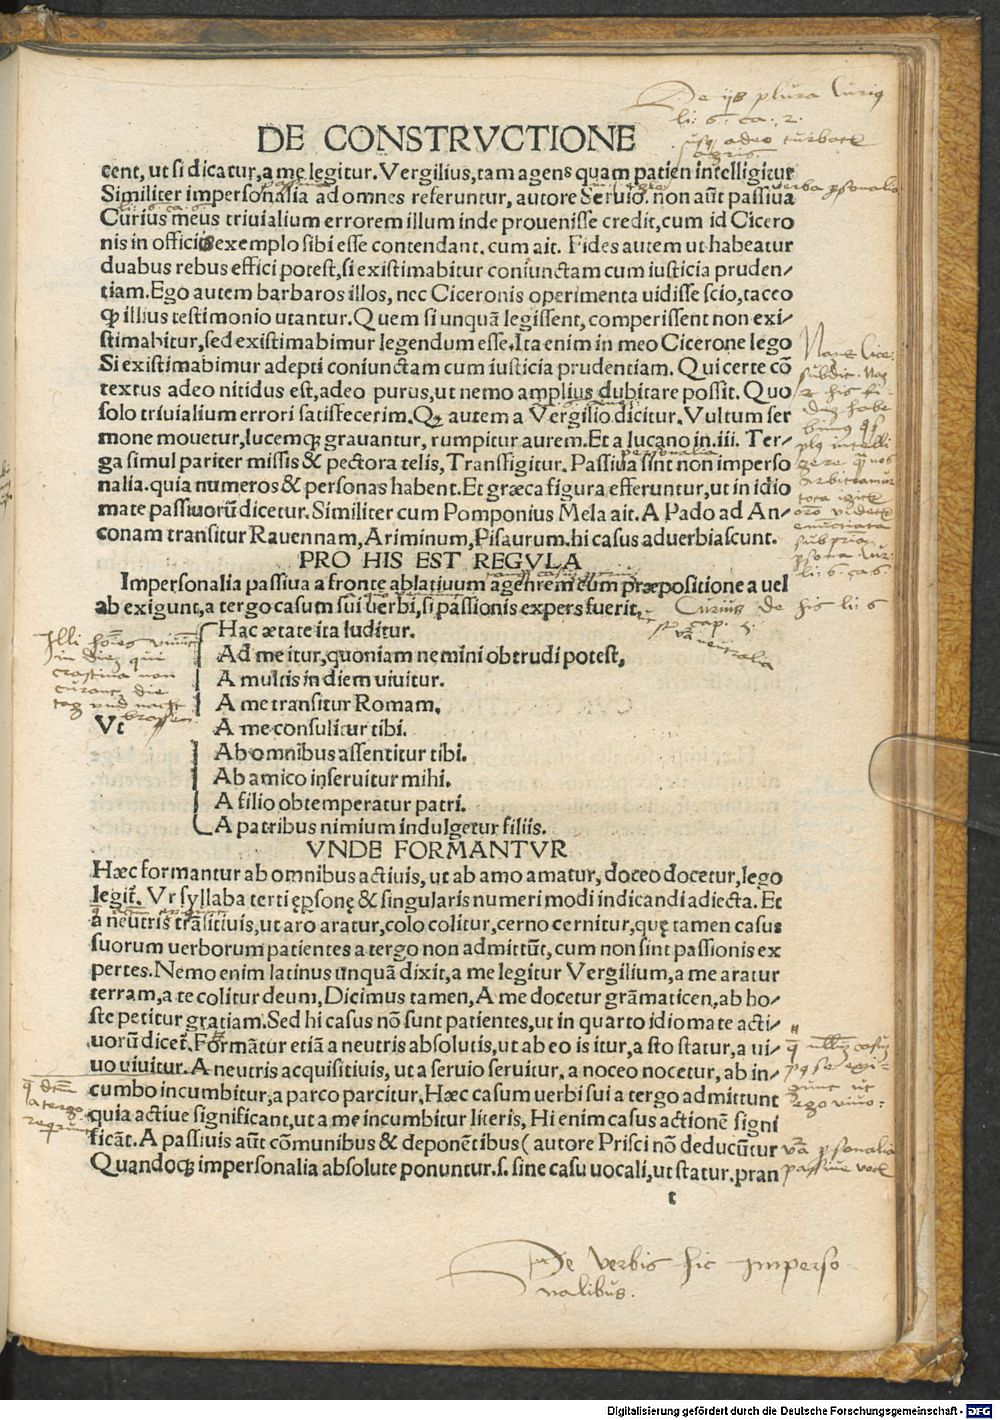 De iis plura Curius
li: 6. ca: 2.
usq adeo turbatur
agris.
DE CONSTRVCTIONE
cent, ut si dicatur, a me legitur. Vergilius, tam agens quam patien intelligitur
Similiter impersonalia ad omnes referuntur, autore Seruio. non aũt passiua
verba psonalia
Curius meus triuialium errorem illum inde prouenisse credit, cum id Cicero
nis in officiis exemplo sibi esse contendant. cum ait. Fides autem ut habeatur
duabus rebus effici potest, si existimabitur coniunctam cum iusticia pruden/
tiam. Ego autem barbaros illos, nec Ciceronis operimenta uidisse scio, taceo
ꝙ illius testimonio utantur. Quem si unquã legissent, comperissent non exi/
stimabitur, sed existimabimur legendum esse. Ita enim in meo Cicerone lego
Si existimabimur adepti coniunctam cum iusticia prudentiam. Qui certe cõ
textus adeo nitidus est, adeo purus, ut nemo amplius dubitare possit. Quo
solo triuialium errori satisfecerim. Qꝫ autem a Vergilio dicitur. Vultum ser
mone mouetur, lucemqꝫ grauantur, rumpitur aurem. Et a lucano in. iii. Ter/
personalia
ga simul pariter missis & pectora telis, Transfigitur. Passiua sint non imperso
nalia. quia numeros & personas habent. Et græca figura efferuntur, ut in idio
mate passiuorũ dicetur. Similiter cum Pomponius Mela ait. A Pado ad An/
conam transitur Rauennam, Ariminum, Pisaurum. hi casus aduerbiascunt.
PRO HIS EST REGVLA
Impersonalia passiua a fronte ablatiuum agentem cum præpositione a uel
ab exigunt, a tergo casum sui uerbi, si passionis expers fuerit.
Curius de his li: 6
cap. 2.
Hac ætate ita luditur.
Ad me itur, quoniam nemini obtrudi potest,
A multis in diem uiuitur.
A me transitur Romam.
Vt
A me consulitur tibi.
Ab omnibus assentitur tibi.
Ab amico inseruitur mihi.
A filio obtemperatur patri.
A patribus nimium indulgetur filiis.
VNDE FORMANTVR
Hæc formantur ab omnibus actiuis, ut ab amo amatur, doceo docetur, lego
legit̃. Vr syllaba terti ę psonę & singularis numeri modi indicandi adiecta. Et
a neutris trãsitiuis, ut aro aratur, colo colitur, cerno cernitur, quę tamen casus
suorum uerborum patientes a tergo non admittũt, cum non sint passionis ex
pertes. Nemo enim latinus unquã dixit, a me legitur Vergilium, a me aratur
terram, a te colitur deum, Dicimus tamen, A me docetur grãmaticen, ab ho/
ste petitur gratiam. Sed hi casus nõ sunt patientes, ut in quarto idiomate acti/
uorũ dicet̃. Formãtur etiã a neutris absolutis, ut ab eo is itur, a sto statur, a ui/
uo uiuitur. A neutris acquisitiuis, ut a seruio seruitur, a noceo nocetur, ab in/
cumbo incumbitur, a parco parcitur. Hæc casum uerbi sui a tergo admittunt
quia actiue significant, ut a me incumbitur literis, Hi enim casus actionẽ signi
ficãt. A passiuis aũt cõmunibus & deponẽtibus ( autore Prisci nõ deducũtur
Quandoqꝫ impersonalia absolute ponuntur. s. sine casu uocali, ut statur. pran
t
De verbis hic imperso
nalibus.
Digitalisierung gefördert durch die Deutsche Forschungsgemeinschaft - DFG